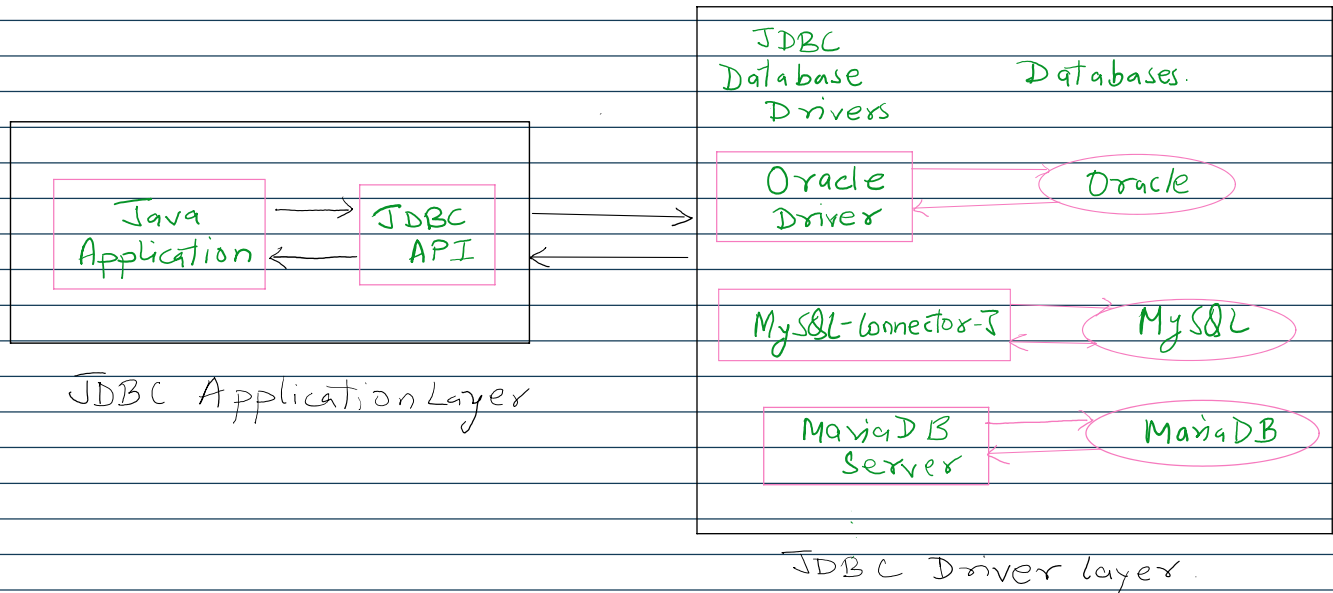 JDBC
Database
Drivers
Databases.
Java
Application
JDBC
API
Oracle
Driver
Oracle
MySQL-Connector-J
MySQL
MariaDB
Server
MariaDB
JDBC Application Layer
JDBC Driver layer.